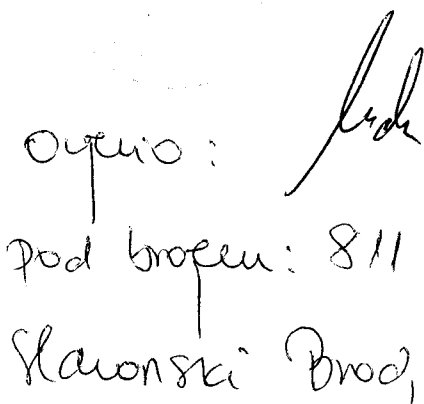 Ovjerio:
pod brojem: 811
Slavonski Brod,